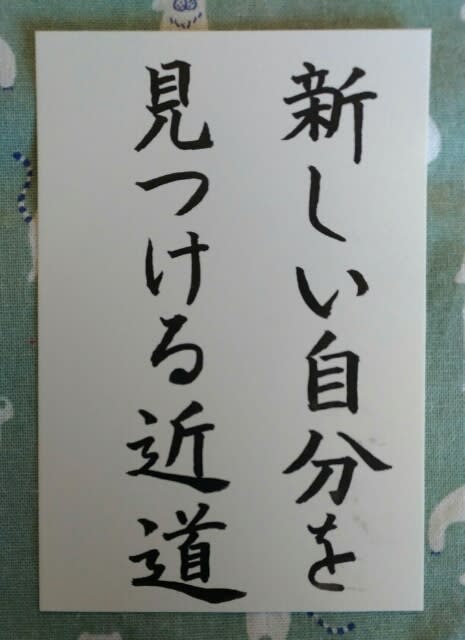 新しい自分を
見つける近道